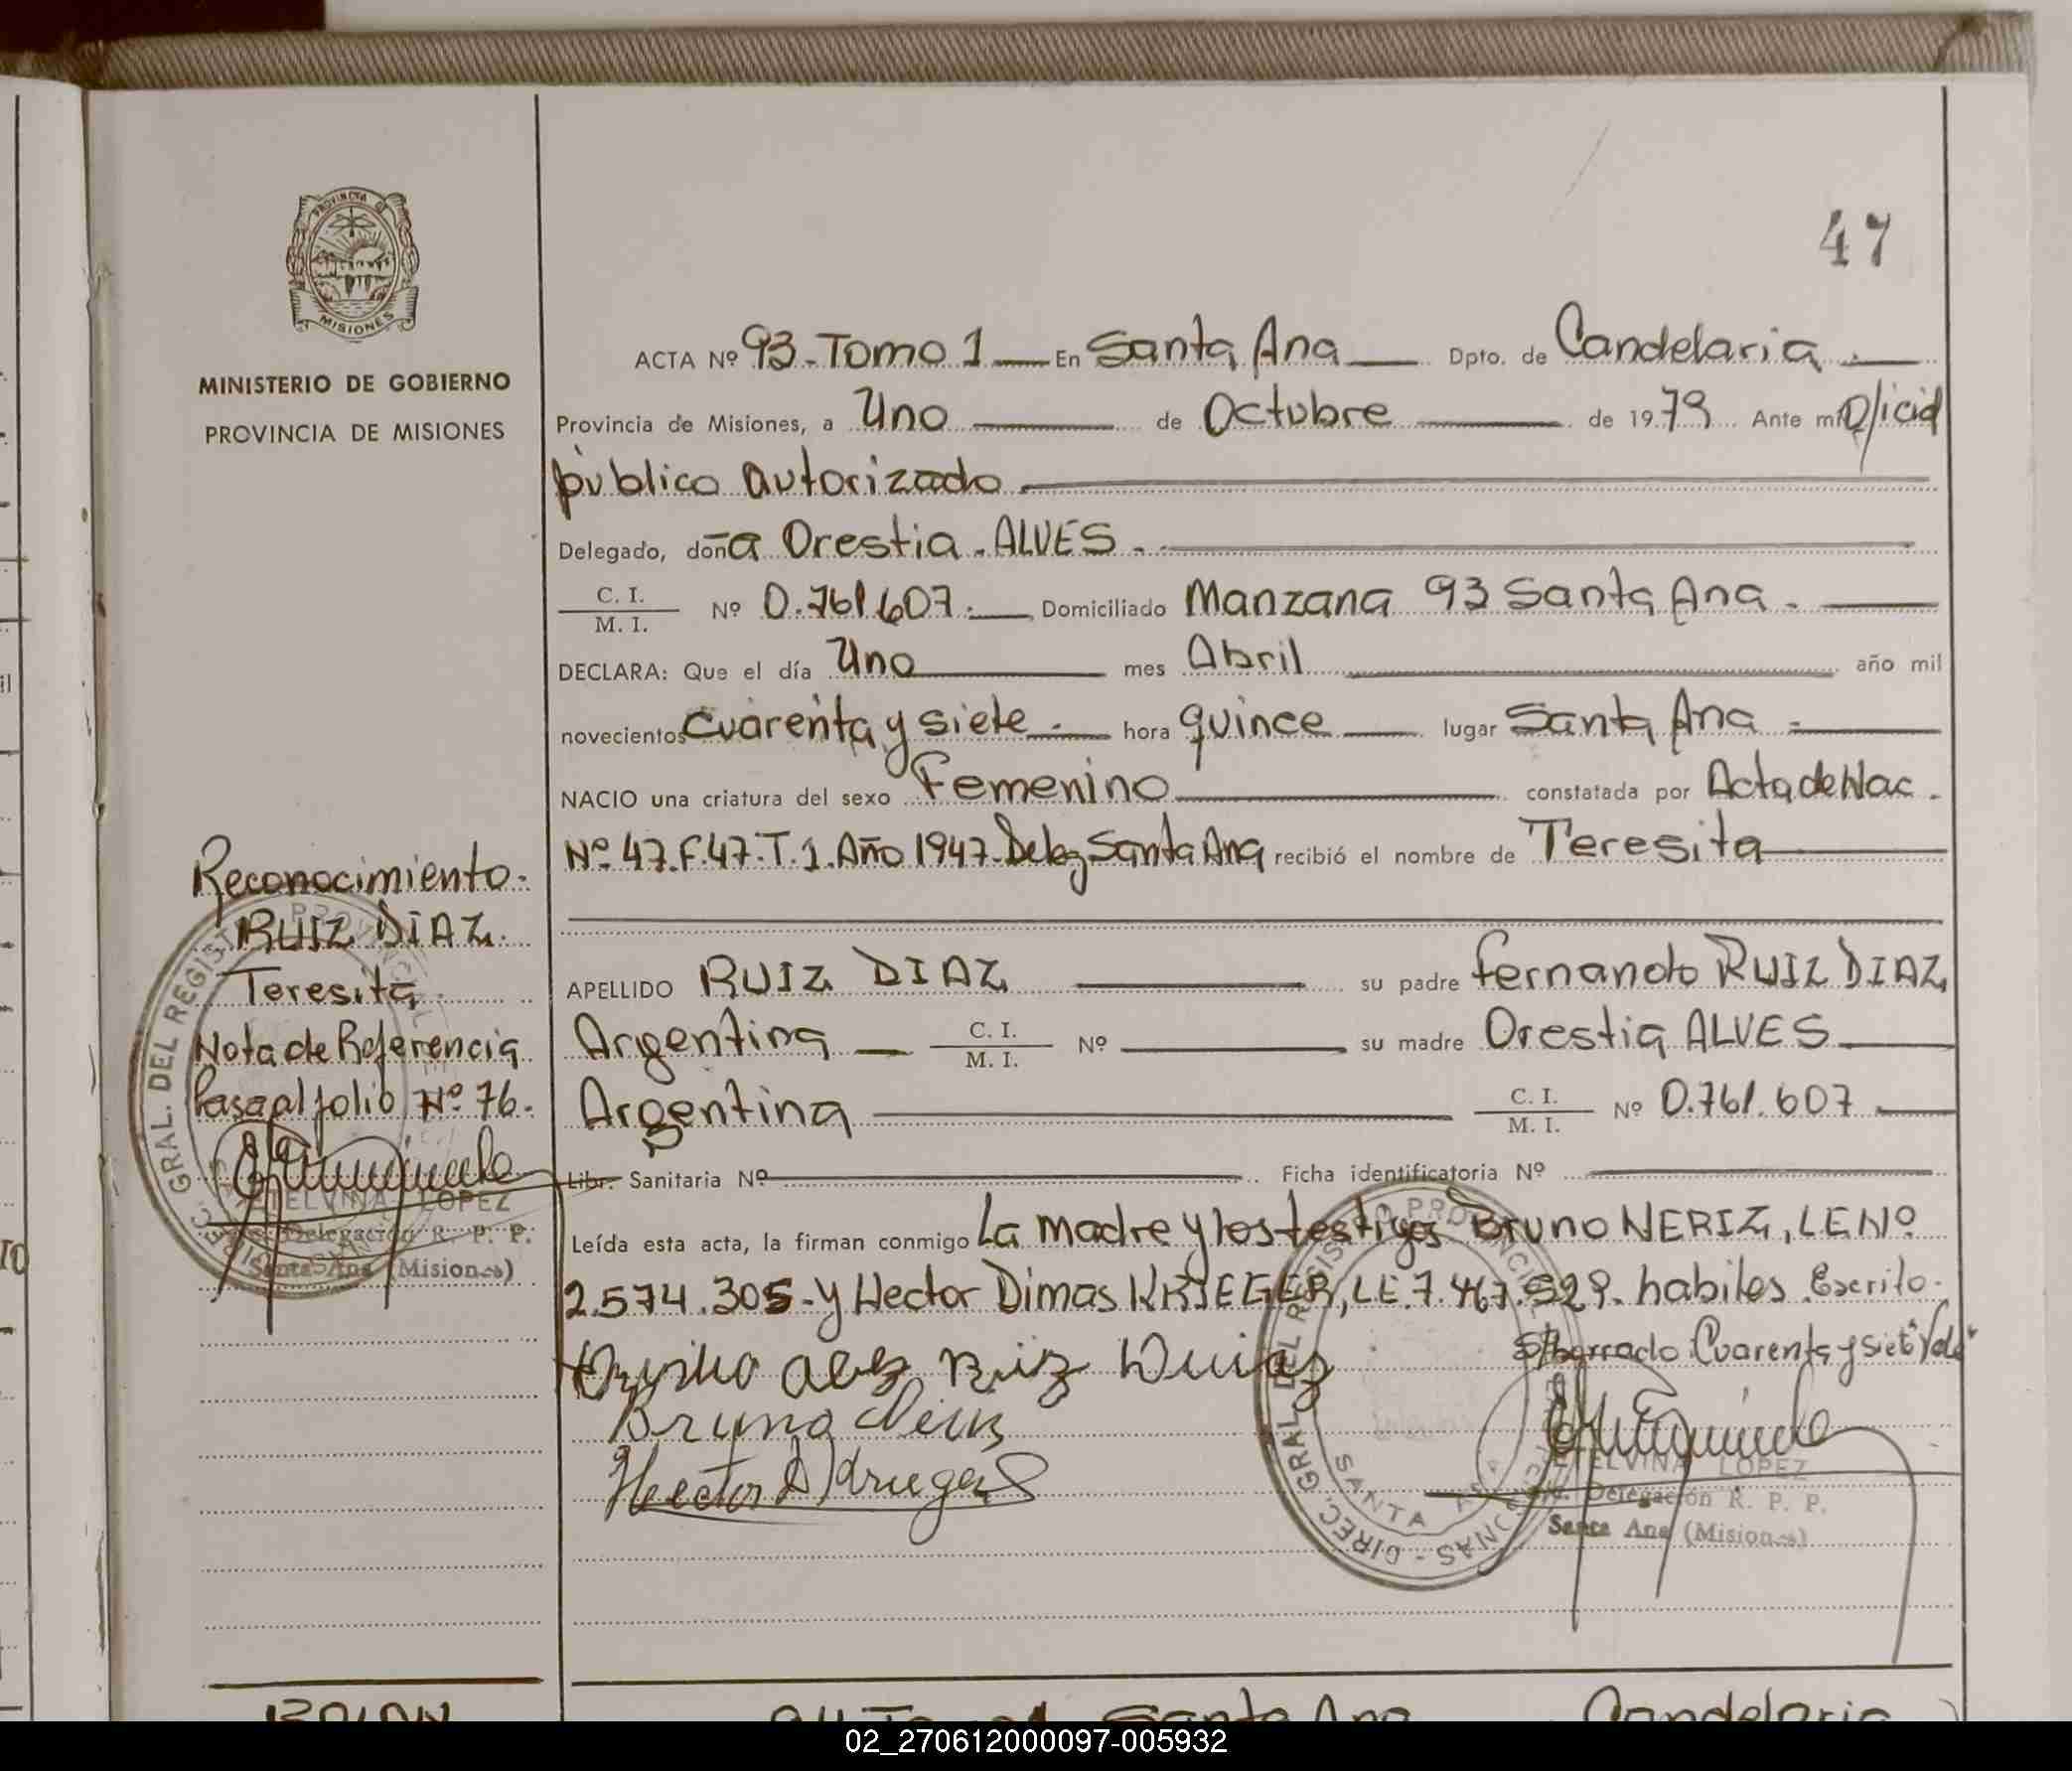 47
PROVINCIA DE
MISIONES
MINISTERIO DE GOBIERNO
PROVINCIA DE MISIONES
ACTA Nº 93-Tomo 1 — En Santa Ana — Dpto. de Candelaria . —
Provincia de Misiones, a Uno — de Octubre — de 1979 Ante mí Oficial
público autorizado
Delegado, doña Orestia . ALVES . -
C. I.
M. I. Nº 0.761.607.— Domiciliado Manzana 93 Santa Ana . —
DECLARA: Que el día Uno — mes Abril — año mil
novecientos cuarenta y siete.— hora quince — lugar Santa Ana . —
NACIO una criatura del sexo Femenino — constatada por Acta de Nac.
Nº 47.F.47.T.1.Año 1947-Deleg. Santa Ana recibió el nombre de Teresita
APELLIDO RUIZ DIAZ — su padre Fernando RUIZ DIAZ
Argentina — C. I.
M. I. Nº — su madre Orestia ALVES
Argentina — C. I.
M. I. Nº 0.761.607
Libr. Sanitaria Nº — Ficha identificatoria Nº
Leída esta acta, la firman conmigo La madre y los testigos Bruno NERIZ, LE Nº
2.574.305-y Hector Dimas KRIEGER, LE.7.467.529. habiles. Escrito
S/borrado Cuarenta y siete"Vale"
Bruno Neriz
Hector D Krieger
Reconocimiento.
RUIZ DIAZ.
Teresita
Nota de Referencia
Pasa al folio Nº 76.
ETELVINA LOPEZ
Delegación R. P. P.
Santa Ana (Misiones)
DIREC. GRAL. DEL REGISTRO PROVINCIAL
DIREC. GRAL. DEL REGISTRO PROVINCIAL DE LAS PERSONAS -
SANTA ANA
ETELVINA LOPEZ
Delegación R. P. P.
Santa Ana (Misiones)
Santa Ana Candelaria
02_270612000097-005932